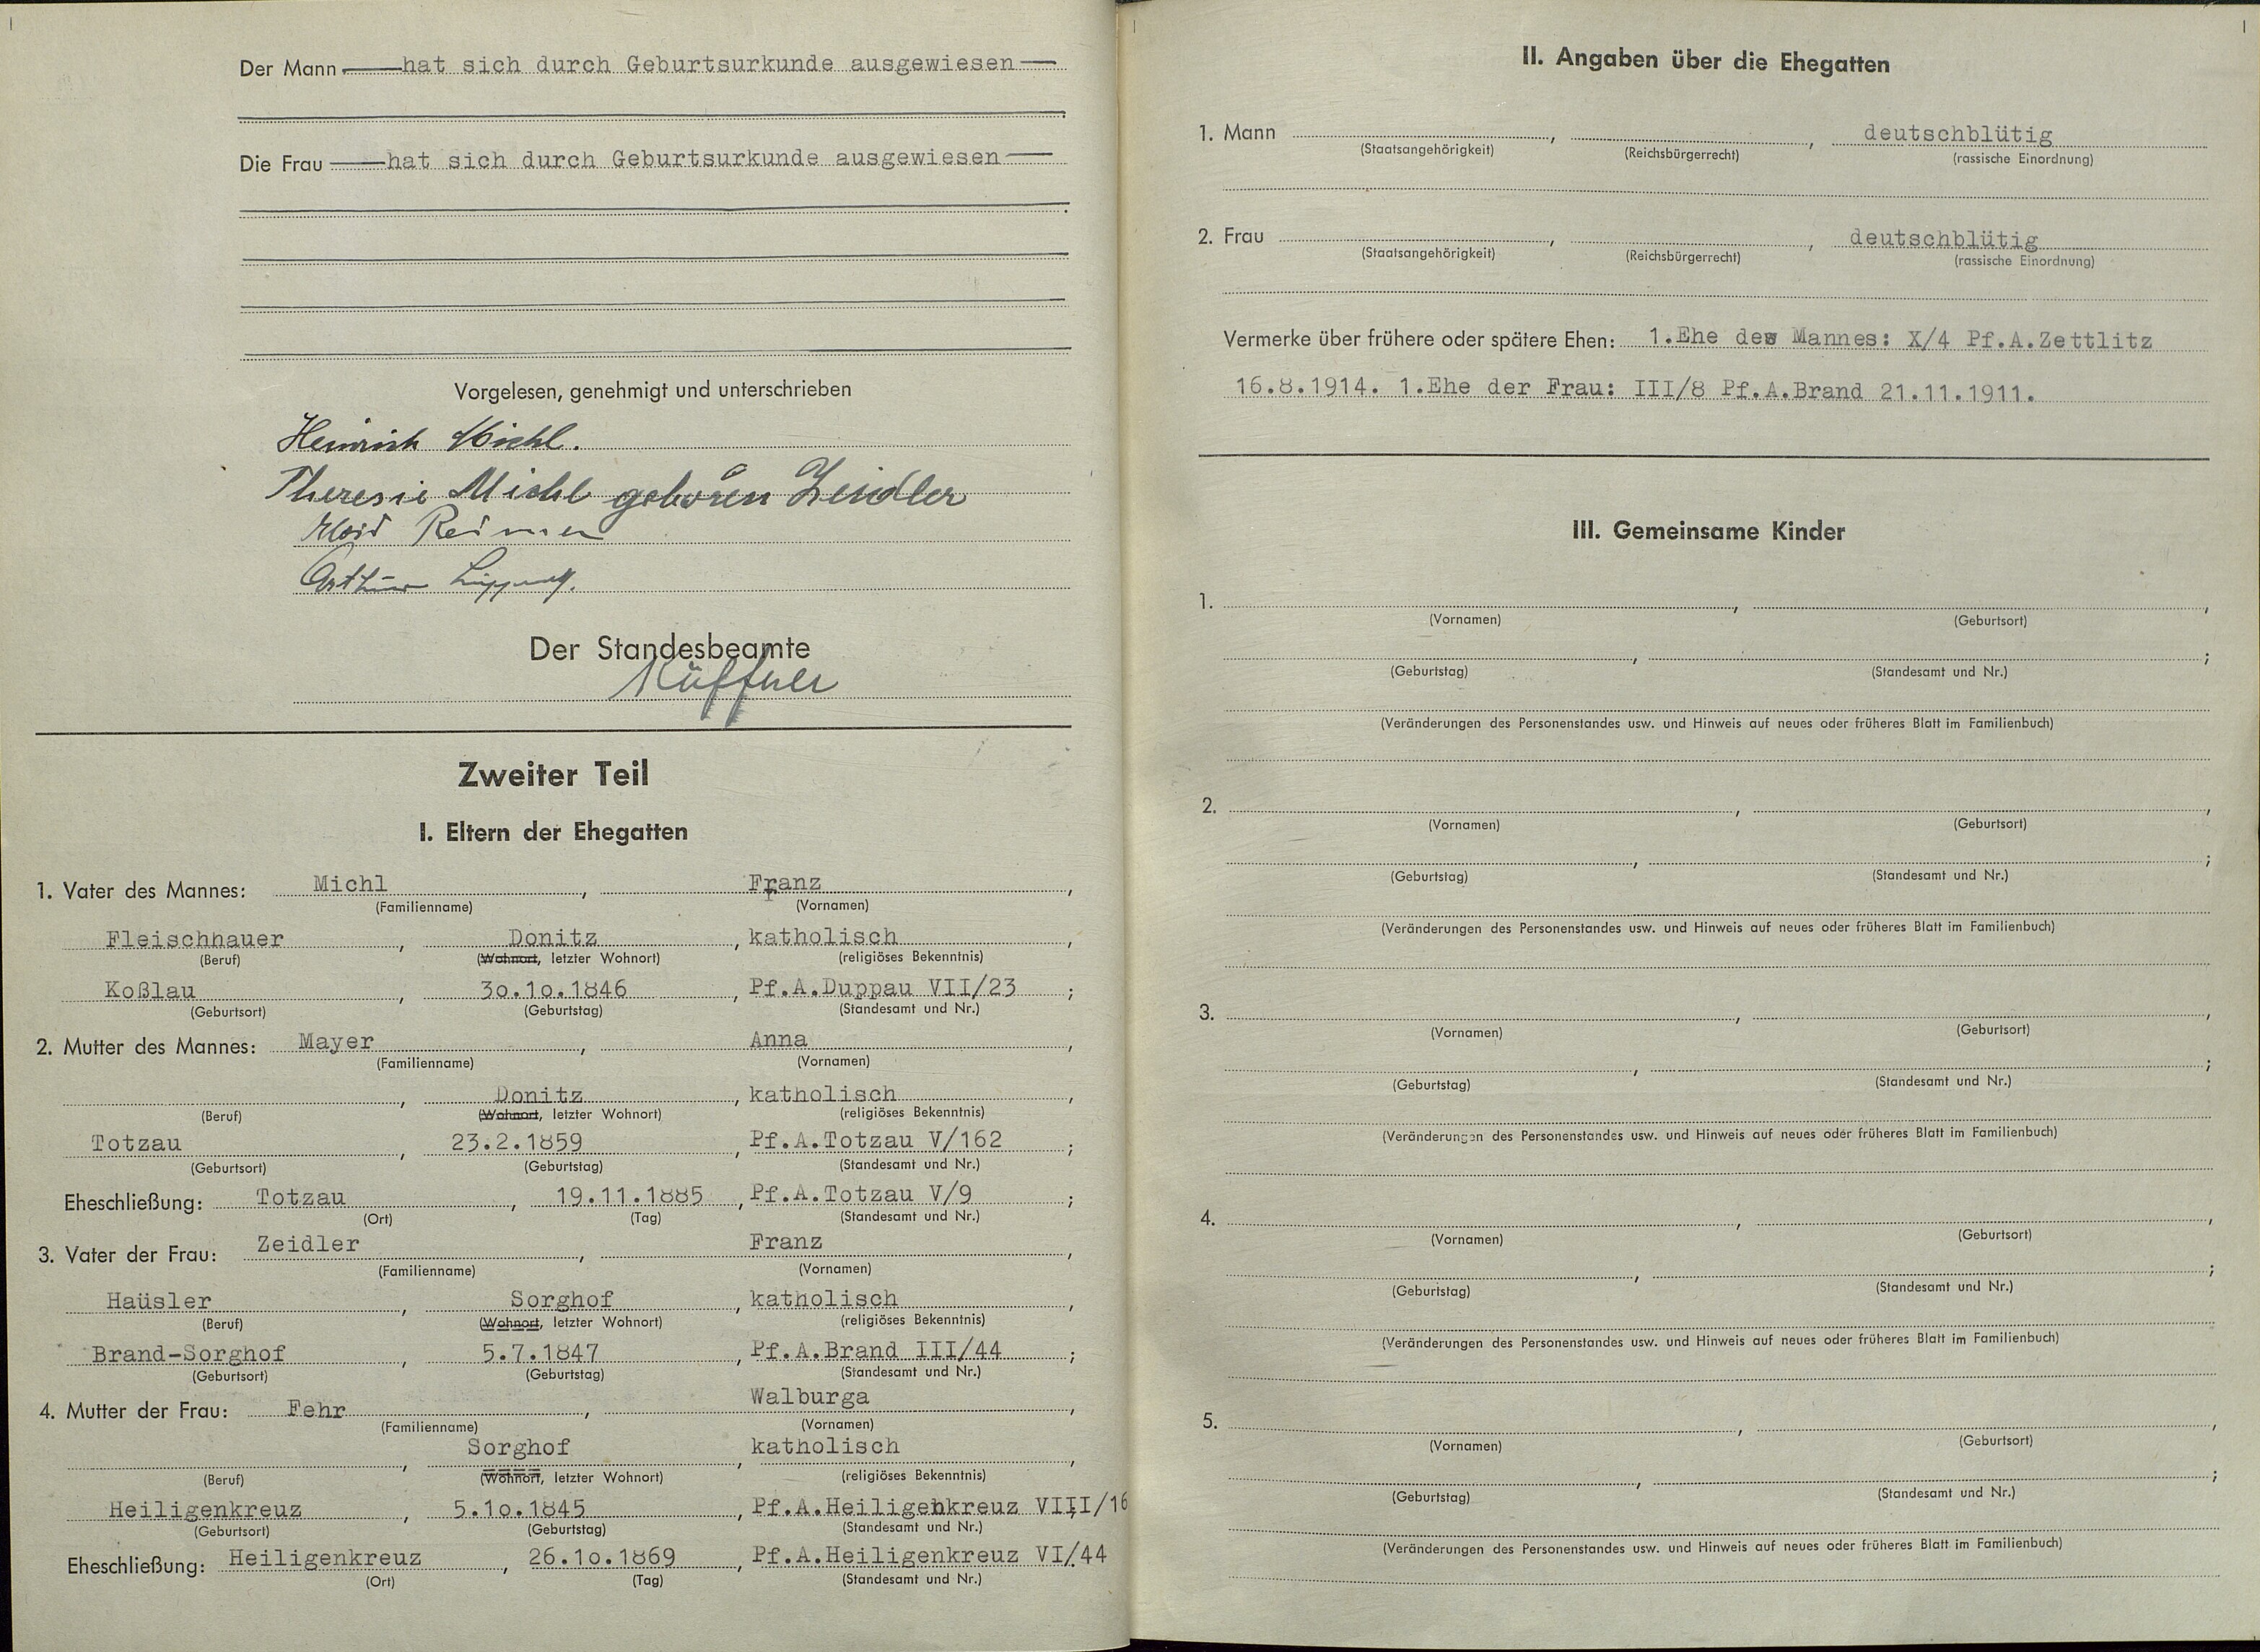 Der Mann hat sich durch Geburtsurkunde ausgewiesen
Die Frau hat sich durch Geburtsurkunde ausgewiesen
Vorgelesen, genehmigt und unterschrieben
Heinrich Michl.
Theresie Michl geboren Zeidler
Arthur
Der Standesbeamte
Küffner
Zweiter Teil
I. Eltern der Ehegatten
1. Vater des Mannes: Michl, Franz,
(Familienname) (Vornamen)
Fleischhauer, Donitz, katholisch,
(Beruf) (Wohnort, letzter Wohnort) (religiöses Bekenntnis)
Koßlau, 3o.1o.1846, Pf.A.Duppau VII/23;
(Geburtsort) (Geburtstag) (Standesamt und Nr.)
2. Mutter des Mannes: Mayer, Anna,
(Familienname) (Vornamen)
, Donitz, katholisch,
(Beruf) (Wohnort, letzter Wohnort) (religiöses Bekenntnis)
Totzau, 23.2.1859, Pf.A.Totzau V/162;
(Geburtsort) (Geburtstag) (Standesamt und Nr.)
Eheschließung: Totzau, 19.11.1885, Pf.A.Totzau V/9;
(Ort) (Tag) (Standesamt und Nr.)
3. Vater der Frau: Zeidler, Franz,
(Familienname) (Vornamen)
Haüsler, Sorghof, katholisch,
(Beruf) (Wohnort, letzter Wohnort) (religiöses Bekenntnis)
Brand-Sorghof, 5.7.1847, Pf.A.Brand III/44;
(Geburtsort) (Geburtstag) (Standesamt und Nr.)
4. Mutter der Frau: Fehr, Walburga,
(Familienname) (Vornamen)
, Sorghof, katholisch,
(Beruf) (Wohnort, letzter Wohnort) (religiöses Bekenntnis)
Heiligenkreuz, 5.1o.1845, Pf.A.Heiligenkreuz VIII/16
(Geburtsort) (Geburtstag) (Standesamt und Nr.)
Eheschließung: Heiligenkreuz, 26.1o.1869, Pf.A.Heiligenkreuz VI/44
(Ort) (Tag) (Standesamt und Nr.)
II. Angaben über die Ehegatten
1. Mann , , deutschblütig
(Staatsangehörigkeit) (Reichsbürgerrecht) (rassische Einordnung)
2. Frau , , deutschblütig
(Staatsangehörigkeit) (Reichsbürgerrecht) (rassische Einordnung)
Vermerke über frühere oder spätere Ehen: 1.Ehe des Mannes: X/4 Pf.A.Zettlitz
16.8.1914. 1.Ehe der Frau: III/8 Pf.A.Brand 21.11.1911.
III. Gemeinsame Kinder
1. , ,
(Vornamen) (Geburtsort)
, ;
(Geburtstag) (Standesamt und Nr.)
(Veränderungen des Personenstandes usw. und Hinweis auf neues oder früheres Blatt im Familienbuch)
2. , ,
(Vornamen) (Geburtsort)
, ;
(Geburtstag) (Standesamt und Nr.)
(Veränderungen des Personenstandes usw. und Hinweis auf neues oder früheres Blatt im Familienbuch)
3. , ,
(Vornamen) (Geburtsort)
, ;
(Geburtstag) (Standesamt und Nr.)
(Veränderungen des Personenstandes usw. und Hinweis auf neues oder früheres Blatt im Familienbuch)
4. , ,
(Vornamen) (Geburtsort)
, ;
(Geburtstag) (Standesamt und Nr.)
(Veränderungen des Personenstandes usw. und Hinweis auf neues oder früheres Blatt im Familienbuch)
5. , ,
(Vornamen) (Geburtsort)
, ;
(Geburtstag) (Standesamt und Nr.)
(Veränderungen des Personenstandes usw. und Hinweis auf neues oder früheres Blatt im Familienbuch)